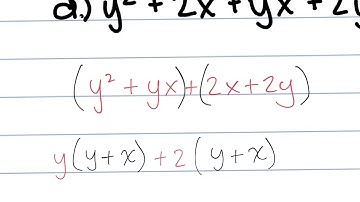 d.) y² + 2x + yx + 2y
(y² + yx) + (2x + 2y)
y (y + x) + 2 (y + x)